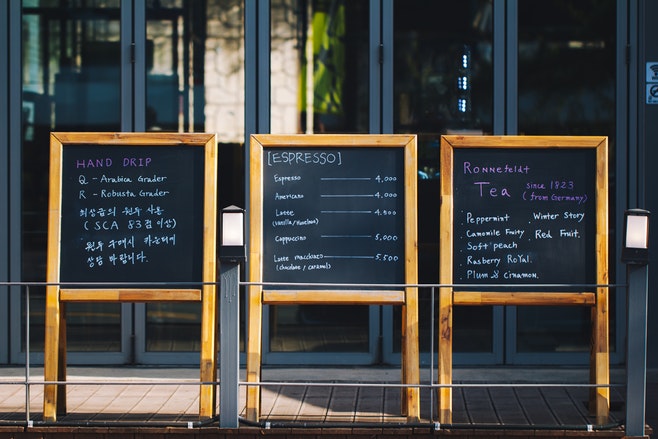 HAND DRIP
Q - Arabica Grader
R - Robusta Grader
최상급의 원두 사용
( SCA 83점 이상)
원두 구매시 카운터에
상담 바랍니다.
[ESPRESSO]
Espresso 4,000
Americano 4,000
Latte 4,500
(vanilla / Hazelnut)
Cappuccino 5,000
Latte macchiato 5,500
(chocolate / caramel)
Ronnefeldt
Tea since 1823
(from Germany)
Peppermint Winter Story
Camomile Fruity Red Fruit.
Soft peach
Rasberry RoYal.
Plum & cinnamon.